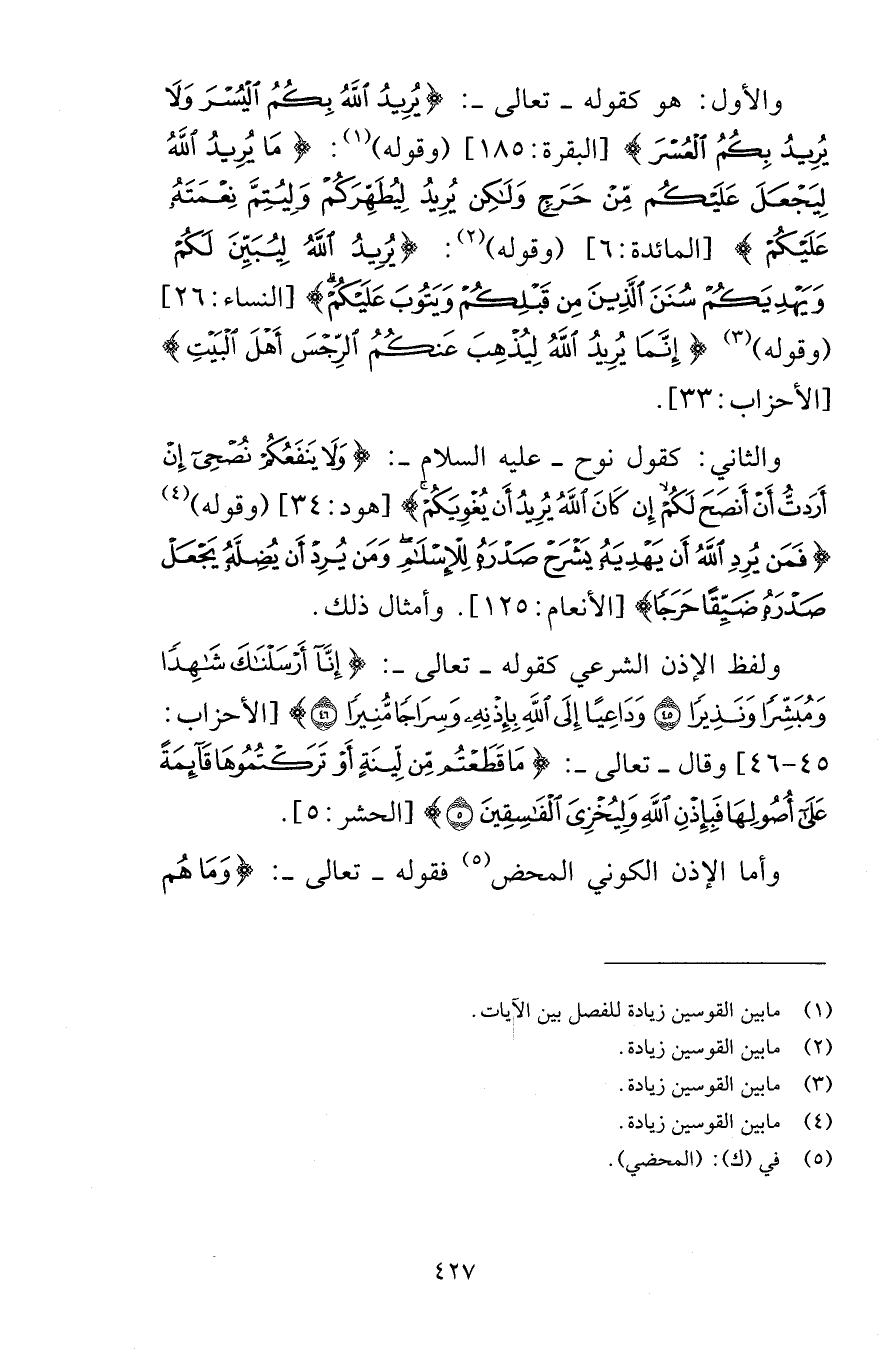 والأول: هو كقوله ـ تعالى ـ: ﴿يُرِيدُ ٱللَّهُ بِكُمُ ٱلْيُسْرَ وَلَا
يُرِيدُ بِكُمُ ٱلْعُسْرَ ﴾ [البقرة: ١٨٥] (وقوله)(١): ﴿ مَا يُرِيدُ ٱللَّهُ
لِيَجْعَلَ عَلَيْكُم مِّنْ حَرَجٍ وَلَٰكِن يُرِيدُ لِيُطَهِّرَكُمْ وَلِيُتِمَّ نِعْمَتَهُۥ
عَلَيْكُمْ ﴾ [المائدة: ٦] (وقوله)(٢): ﴿يُرِيدُ ٱللَّهُ لِيُبَيِّنَ لَكُمْ
وَيَهْدِيَكُمْ سُنَنَ ٱلَّذِينَ مِن قَبْلِكُمْ وَيَتُوبَ عَلَيْكُمْ ۗ﴾ [النساء: ٢٦]
(وقوله)(٣) ﴿ إِنَّمَا يُرِيدُ ٱللَّهُ لِيُذْهِبَ عَنكُمُ ٱلرِّجْسَ أَهْلَ ٱلْبَيْتِ ﴾
[الأحزاب: ٣٣].
والثاني: كقول نوح ـ عليه السلام ـ: ﴿ وَلَا يَنفَعُكُمْ نُصْحِىٓ إِنْ
أَرَدتُّ أَنْ أَنصَحَ لَكُمْ إِن كَانَ ٱللَّهُ يُرِيدُ أَن يُغْوِيَكُمْ ۚ﴾ [هود: ٣٤] (وقوله)(٤)
﴿ فَمَن يُرِدِ ٱللَّهُ أَن يَهْدِيَهُۥ يَشْرَحْ صَدْرَهُۥ لِلْإِسْلَٰمِ ۖ وَمَن يُرِدْ أَن يُضِلَّهُۥ يَجْعَلْ
صَدْرَهُۥ ضَيِّقًا حَرَجًا﴾ [الأنعام: ١٢٥]. وأمثال ذلك.
ولفظ الإذن الشرعي كقوله ـ تعالى ـ: ﴿ إِنَّآ أَرْسَلْنَٰكَ شَٰهِدًا
وَمُبَشِّرًا وَنَذِيرًا ٤٥ وَدَاعِيًا إِلَى ٱللَّهِ بِإِذْنِهِۦ وَسِرَاجًا مُّنِيرًا ٤٦ ﴾ [الأحزاب:
٤٥-٤٦] وقال ـ تعالى ـ: ﴿ مَا قَطَعْتُم مِّن لِّينَةٍ أَوْ تَرَكْتُمُوهَا قَآئِمَةً
عَلَىٰٓ أُصُولِهَا فَبِإِذْنِ ٱللَّهِ وَلِيُخْزِىَ ٱلْفَٰسِقِينَ ٥ ﴾ [الحشر: ٥].
وأما الإذن الكوني المحض(٥) فقوله ـ تعالى ـ: ﴿وَمَا هُم
(١) مابين القوسين زيادة للفصل بين الآيات.
(٢) مابين القوسين زيادة.
(٣) مابين القوسين زيادة.
(٤) مابين القوسين زيادة.
(٥) في (ك): (المحضي).
٤٢٧